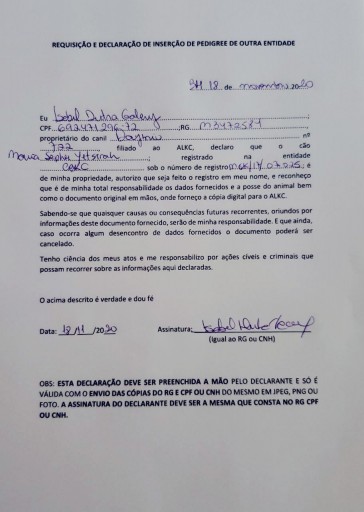 REQUISIÇÃO E DECLARAÇÃO DE INSERÇÃO DE PEDIGREE DE OUTRA ENTIDADE
18 de novembro 2020
Eu Isabel Dutra
CPF ;RG
proprietário do canil nº
722 filiado ao ALKC, declaro que o cão
registrado na entidade
sob o número de registro ; é
de minha propriedade, autorizo que seja feito o registro em meu nome, e reconheço
que é de minha total responsabilidade os dados fornecidos e a posse do animal bem
como o documento original em mãos, onde forneço a cópia digital para o ALKC.
Sabendo-se que quaisquer causas ou consequências futuras recorrentes, oriundos por
informações deste documento fornecido, serão de minha responsabilidade. E que ainda,
caso ocorra algum desencontro de dados fornecidos o documento poderá ser
cancelado.
Tenho ciência dos meus atos e me responsabilizo por ações cíveis e criminais que
possam recorrer sobre as informações aqui declaradas.
O acima descrito é verdade e dou fé
Data: 18/11/2020 Assinatura:
(igual ao RG ou CNH)
OBS: ESTA DECLARAÇÃO DEVE SER PREENCHIDA A MÃO PELO DECLARANTE E SÓ É
VÁLIDA COM O ENVIO DAS CÓPIAS DO RG E CPF OU CNH DO MESMO EM JPEG, PNG OU
FOTO. A ASSINATURA DO DECLARANTE DEVE SER A MESMA QUE CONSTA NO RG CPF
OU CNH.